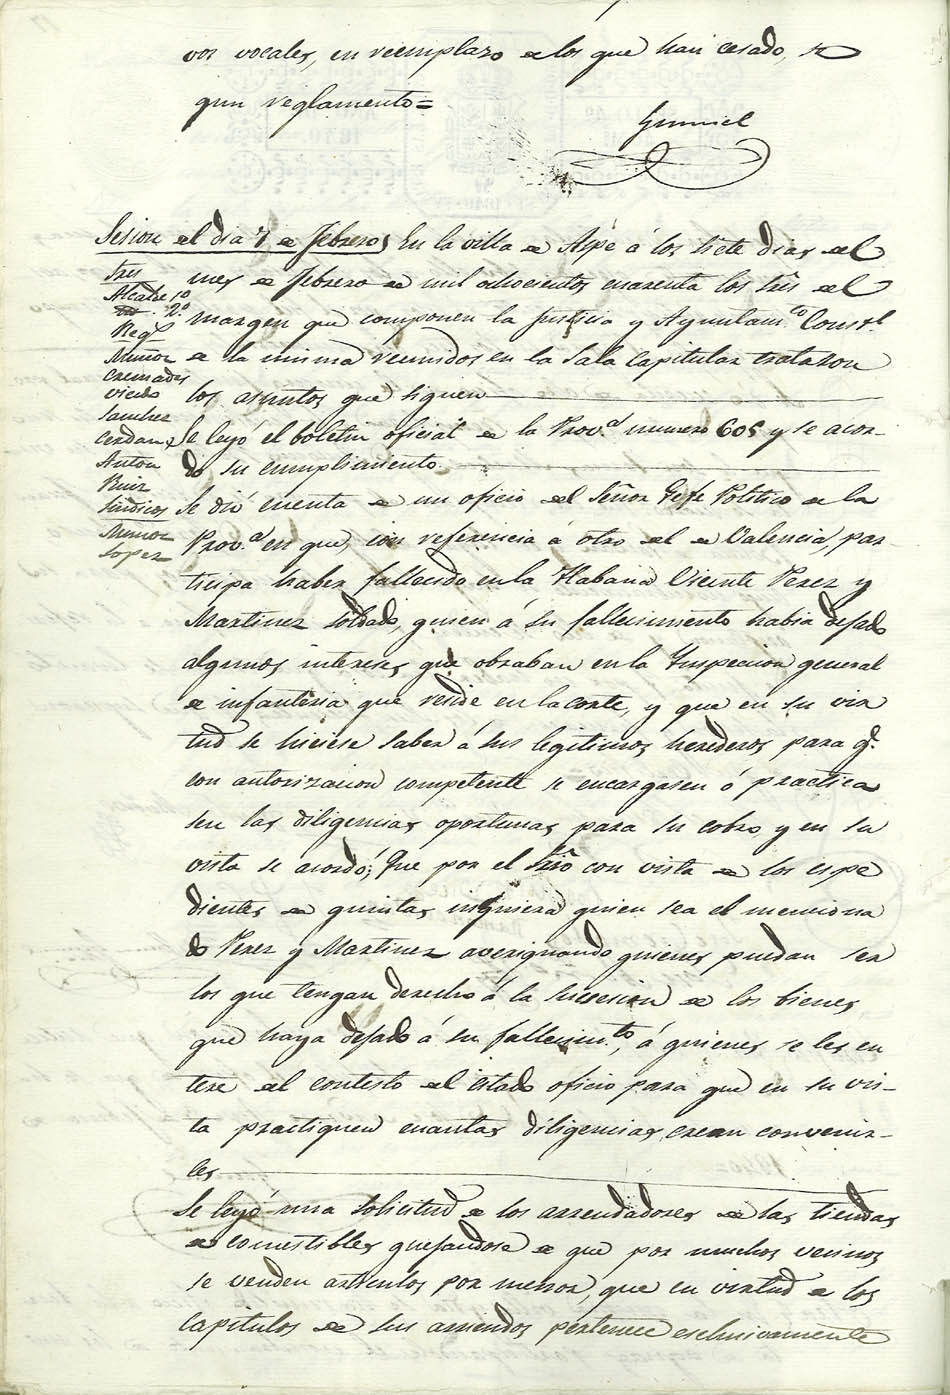 vos vocales, en reemplazo de los que han cesado, se
gun reglamento=
Gumiel
Sesion del dia 7 de febrero
En la villa de Aspe á los siete dias del
mes de febrero de mil ochocientos cuarenta los Sres del
margen que componen la Justicia y Ayuntam.to Const.l
de la misma reunidos en la Sala capitular trataron
los asuntos que siguen
Sres
Alcalde 1º
2º
Reg.s
Muñoz
Cremades
vicedo
Sanchez
Cerdan
Anton
Ruiz
Sindicos
Muñoz
Lopez
Se leyó el boletin oficial de la Prov.a numero 605 y se acor-
dó su cumplimiento
Se dió cuenta de un oficio del Señor Gefe Politico de la
Prov.a en que, con referencia á otro del de Valencia, par-
ticipa haber fallecido en la Habana Vicente Perez y
Martinez Soldado, quien á su fallecimiento habia dejado
algunos intereses que obraban en la Inspeccion general
de infanteria que reside en la corte, y que en su vir
tud se hiciese saber á sus legitimos herederos para q.e
con autorizacion competente se encargasen ó practica
sen las diligencias oportunas para su cobro, y en su
vista se acordó; Que por el Srio con vista de los espe
dientes de quintas inquiera quien sea el menciona
do Perez y Martinez averiguando quienes puedan ser
los que tengan derecho á la sucesion de los bienes
que haya dejado á su fallecim.to, á quienes se les en
tere del contesto del citado oficio para que en su vis-
ta practiquen cuantas diligencias crean convenir-
les
Se leyó una solicitud de los arrendadores de las tiendas
de comestibles quejandose de que por muchos vecinos
se venden articulos por menor, que en virtud de los
capitulos de sus arriendos pertenece esclusivamente